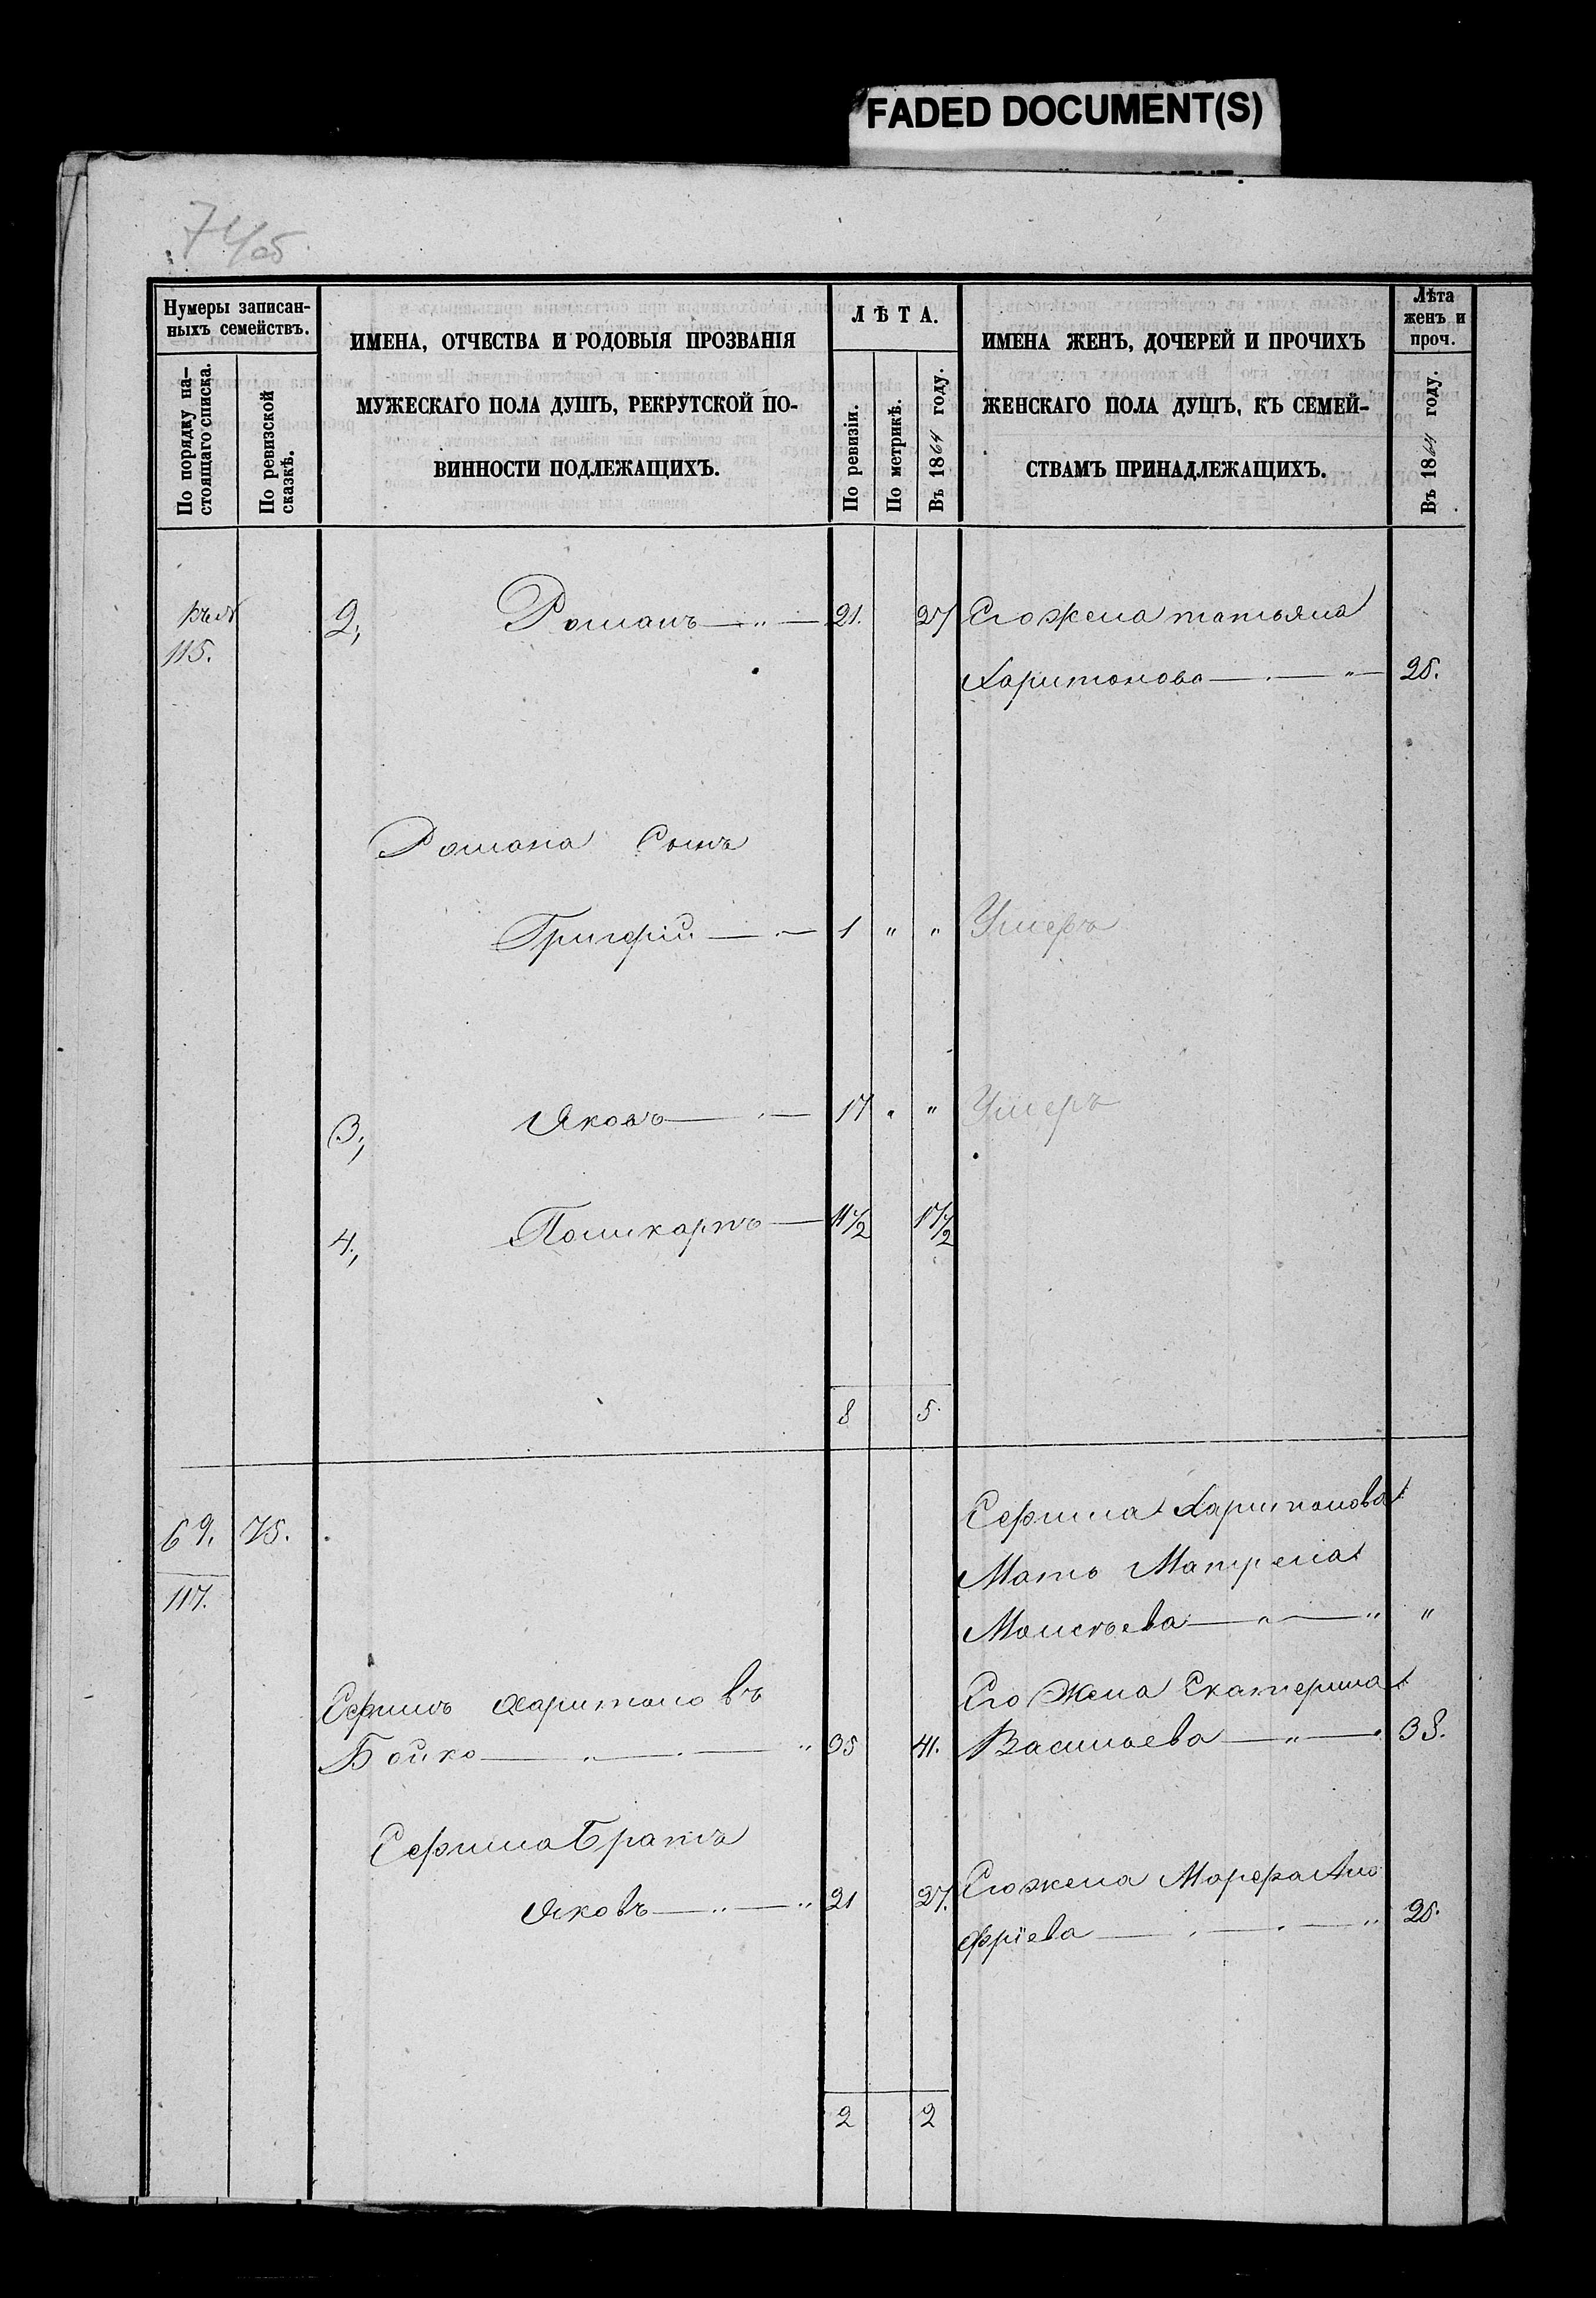 FADED DOCUMENT(S)
Нумеры записан-
ныхъ семействъ.
По порядку на-
стоящаго списка.
По ревизской
сказкѣ.
ИМЕНА, ОТЧЕСТВА И РОДОВЫЯ ПРОЗВАНІЯ
МУЖЕСКАГО ПОЛА ДУШЪ, РЕКРУТСКОЙ ПО-
ВИННОСТИ ПОДЛЕЖАЩИХЪ.
ЛѢТА.
По ревизіи.
По метрикѣ.
Въ 1864 году.
ИМЕНА ЖЕНЪ, ДОЧЕРЕЙ И ПРОЧИХЪ
ЖЕНСКАГО ПОЛА ДУШЪ, КЪ СЕМЕЙ-
СТВАМЪ ПРИНАДЛЕЖАЩИХЪ.
Лѣта
женъ и
проч.
Въ 1864 году.
2, Романъ — " — 21. 27 Его жена татьяна
115.
Харитонова — . — " — 25.
Романа Сынъ
Григорій — . — 1 " " Умеръ
3, Яковъ — . — 17 " " Умеръ
4, Поликарпъ — 11½ 17½
8 5.
69. 75. Ефима Харитонова
Мать Матрена
117.
Моисѣева — " — " "
Ефимъ Харитоновъ Его Жена Екатерина
Бойко — " — . — " 35 41. Васильева — " — . 38.
Ефима Братъ
Яковъ — " — " 21 27. Его жена Марфа Ано
фріева — . — . — " 25.
2 2